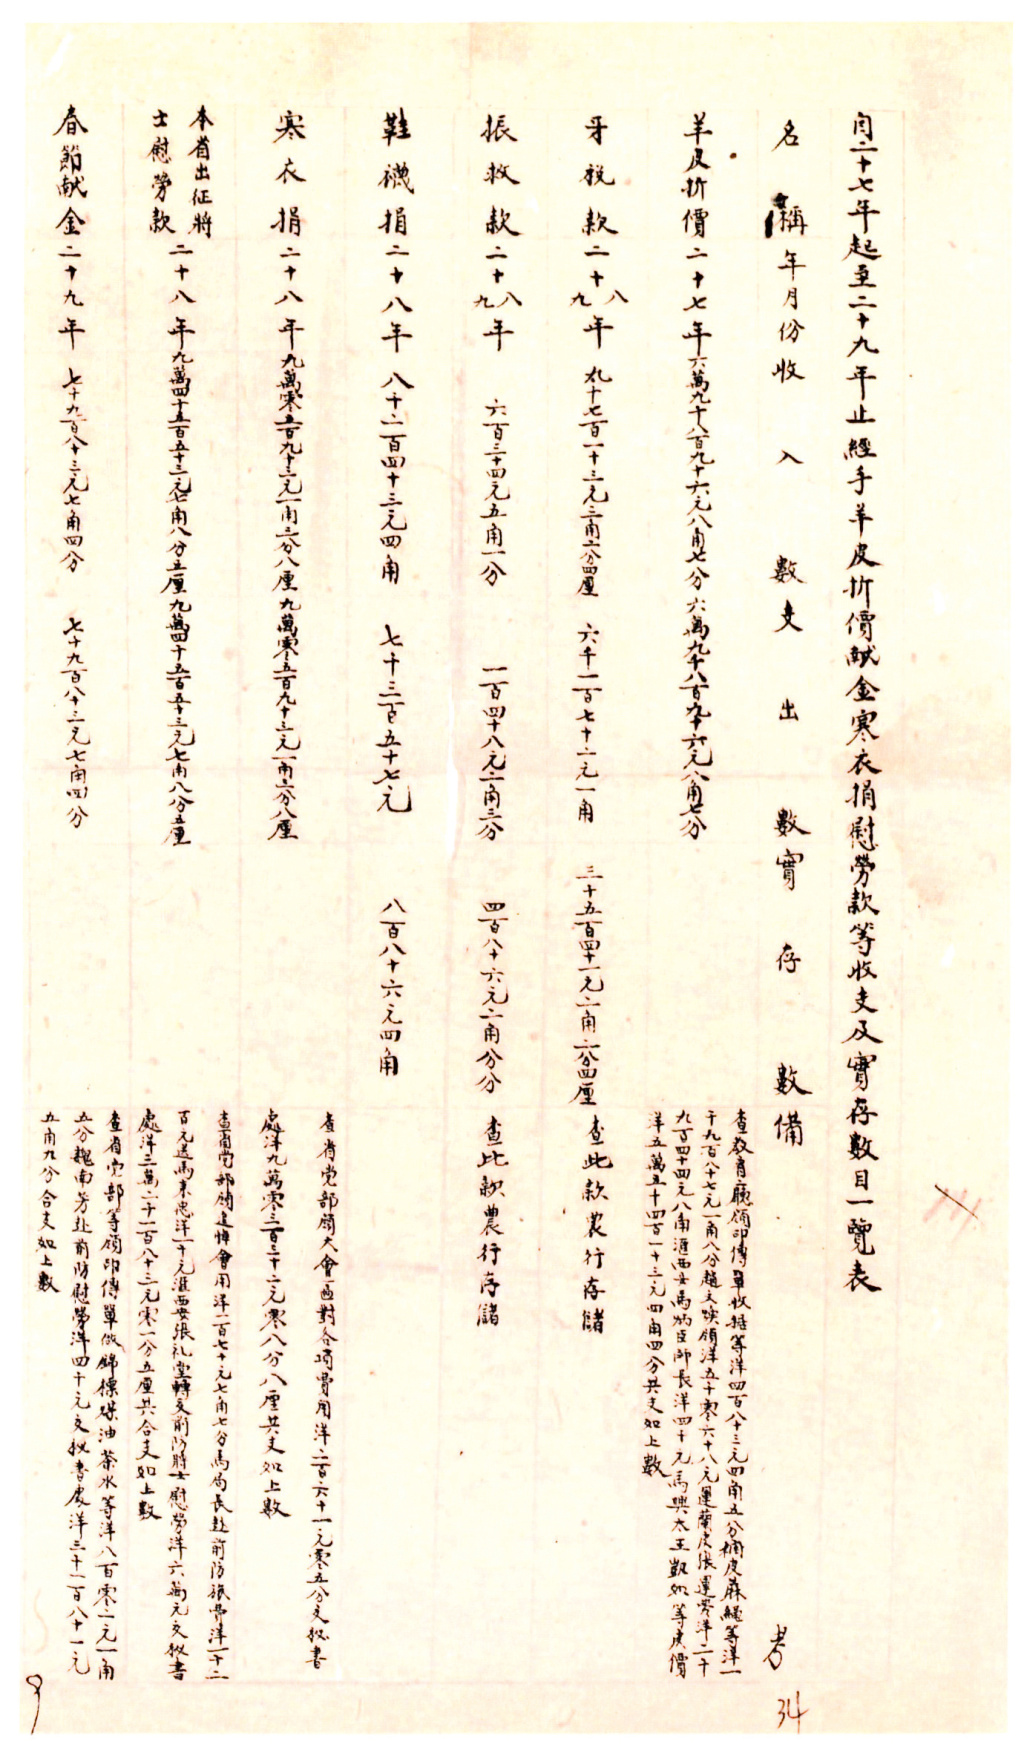 自二十七年起至二十九年止經手羊皮折價献金寒衣捐慰勞款等收支及實存數目一覽表
名稱 年月份 收入數 支出數 實存數 備考
羊皮折價 二十七年 六萬九千八百九十六元八角七分 六萬九千八百九十六元八角七分
查教育廳領印傳單收据等洋四百八十三元四角五分捆皮蔴繩等洋一
千九百八十七元一角八分趙文煥領洋五千零六十八元運蘭皮張運费洋二千
九百四十四元八角滙西安馬炳臣師長洋四千元馬興太王凱如等皮價
洋五萬五千四百一十三元四角四分共支如上數
牙税款 二十八九年 九千七百一十三元三角六分四厘 六千一百七十二元一角 三千五百四十一元二角六分四厘 查此款農行存儲
振救款 二十八九年 六百三十四元五角一分 一百四十八元二角三分 四百八十六元二角分分 查此款農行存儲
鞋襪捐 二十八年 八千二百四十三元四角 七千三百五十七元 八百八十六元四角
寒衣捐 二十八年 九萬零五百九十三元一角三分八厘 九萬零五百九十三元一角六分八厘
查省党部領大會匾對各項費用洋二百六十一元零五分交秘書
處洋九萬零三百三十二元零八分八厘共支如上數
本省出征將
士慰勞款 二十八年 九萬四千五百五十三元七角八分五厘 九萬四千五百五十三元七角八分五厘
查省党部領追悼會用洋一百七十元七角七分馬局長赴前防旅费洋一千二
百元送馬秉忠洋一千元滙西安張礼堂轉交前防將士慰勞洋六萬元交秘書
處洋三萬二千一百八十三元零一分五厘共合支如上數
春節献金 二十九年 七千九百八十三元七角四分 七千九百八十三元七角四分
查省党部等領印傳單做錦標煤油茶水等洋八百零二元一角
五分魏南芳赴前防慰勞洋四千元交秘書處洋三千一百八十一元
五角九分合支如上數
34
9